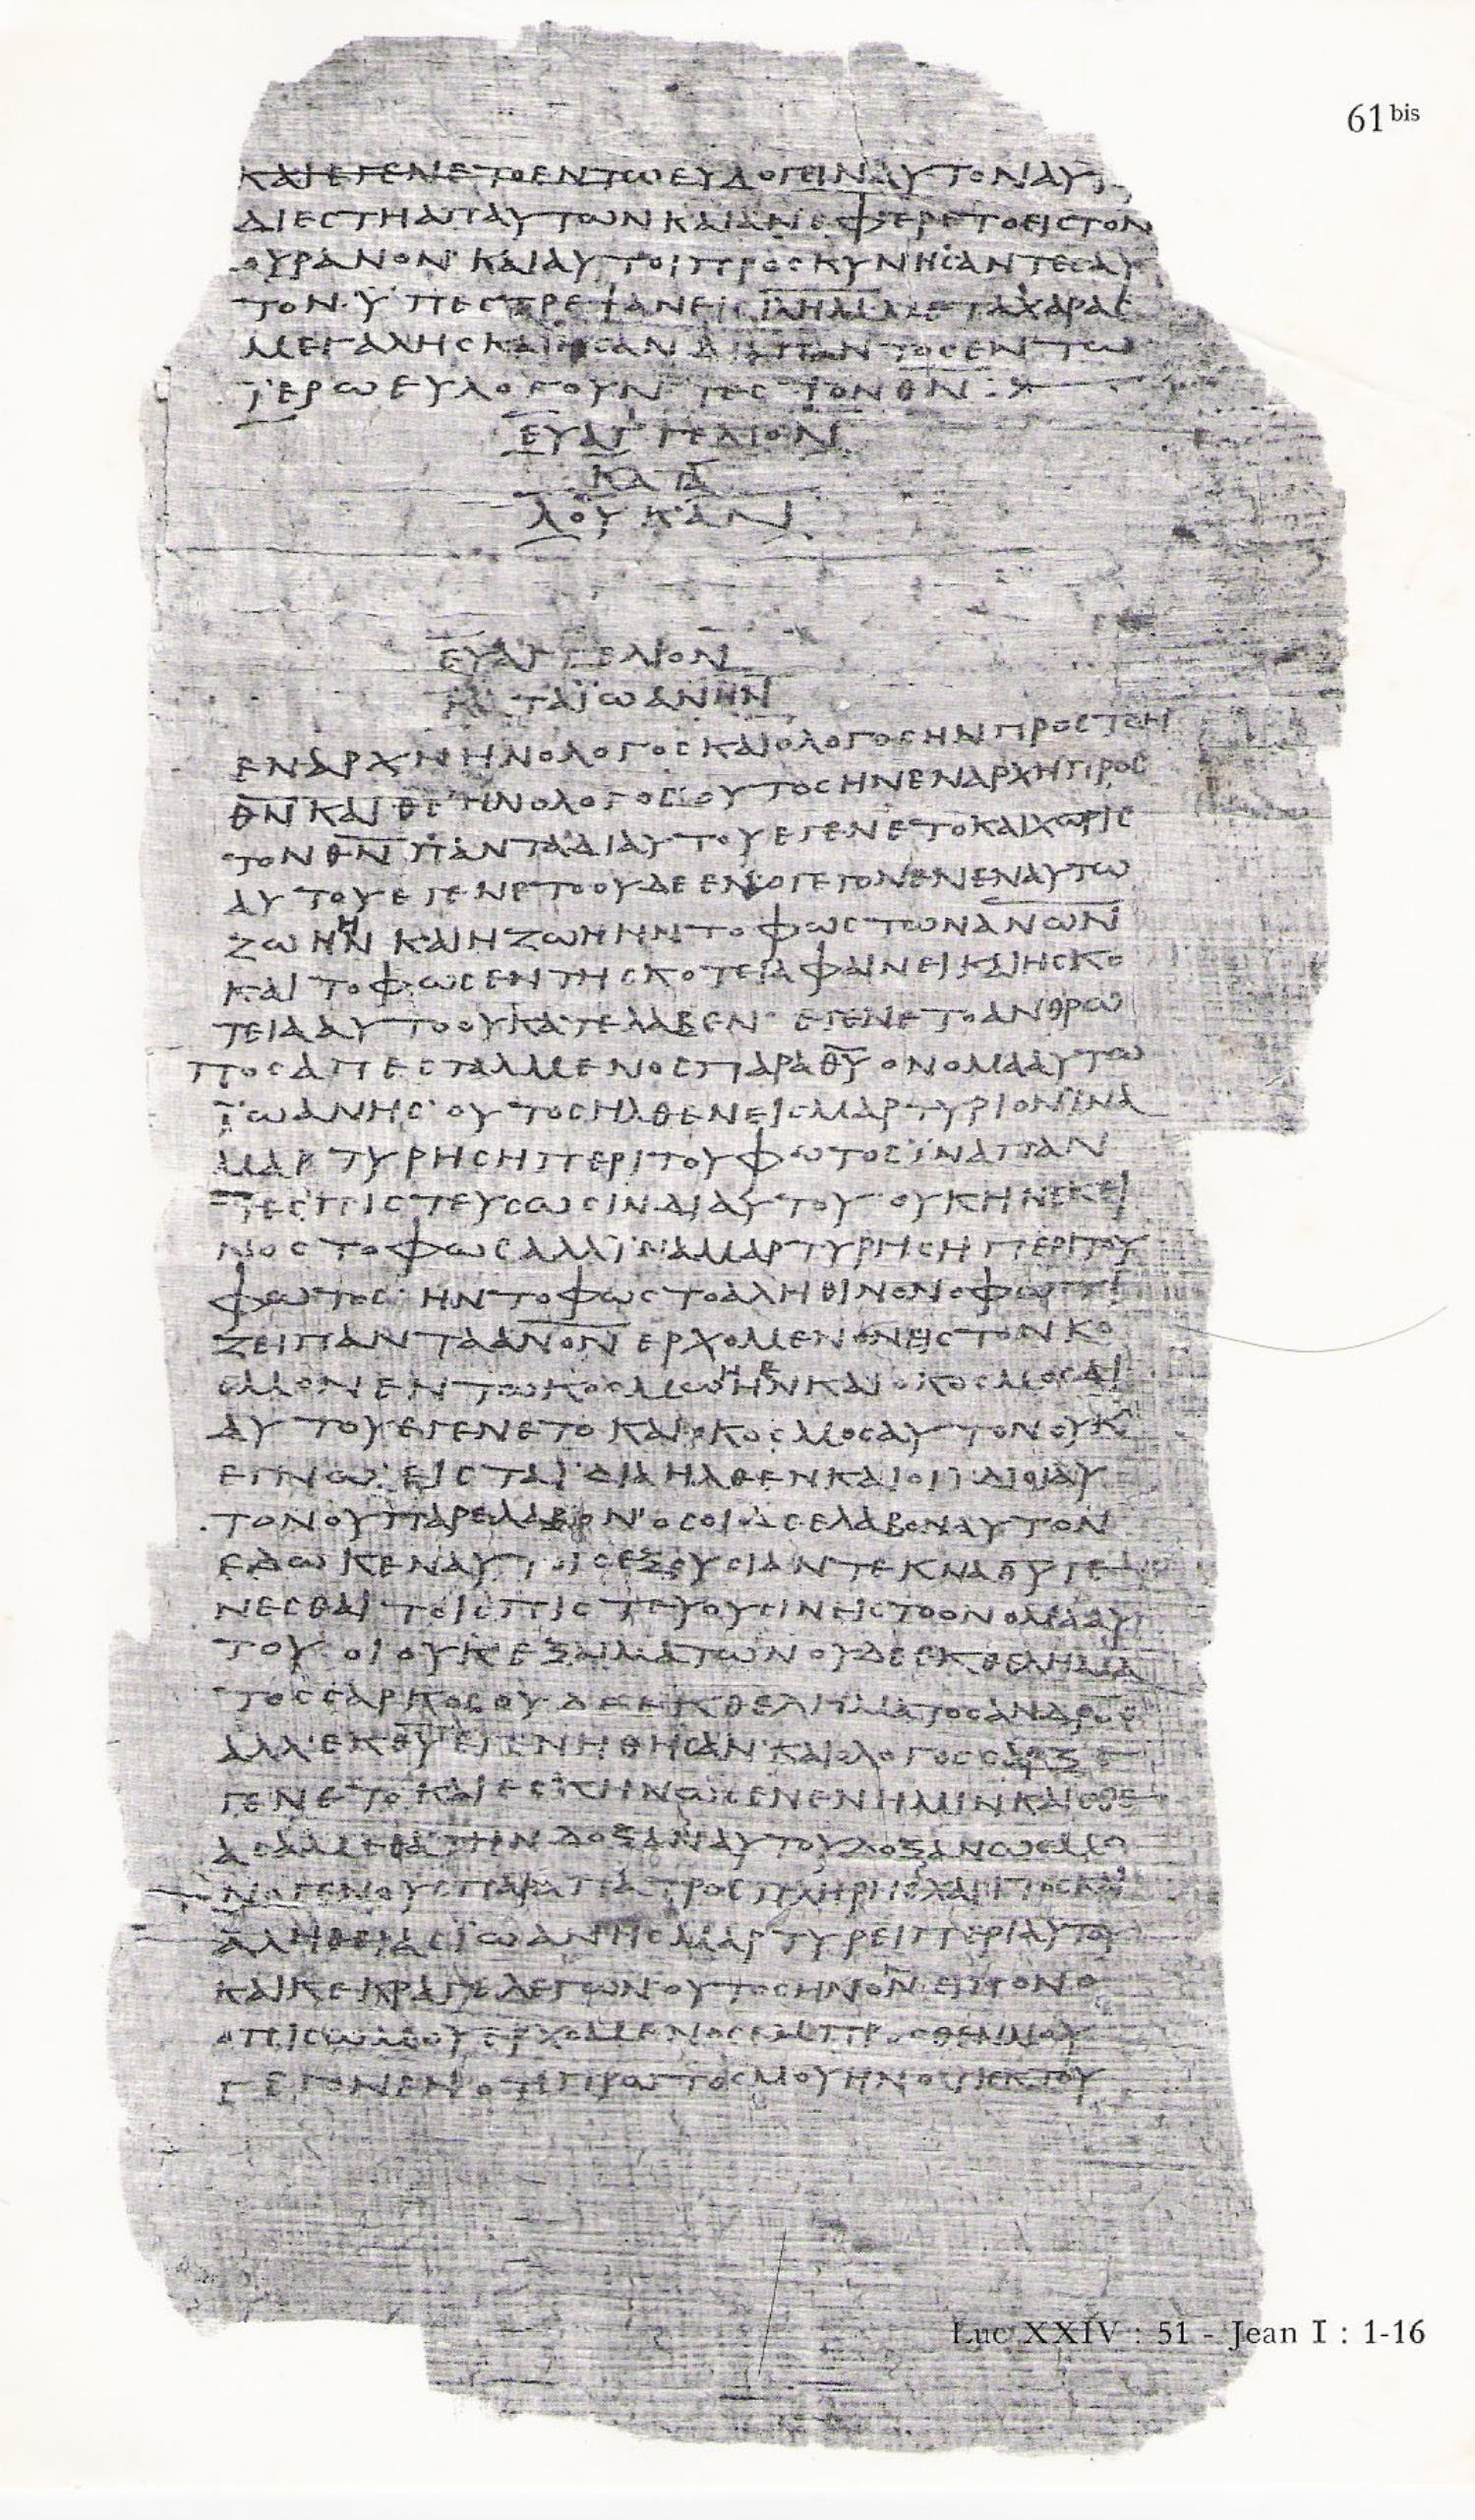 61 bis
ΚΑΙΕΓΕΝΕΤΟΕΝΤΩΕΥΛΟΓΕΙΝΑΥΤΟΝΑΥΤ
ΔΙΕСΤΗΑΠΑΥΤΩΝΚΑΙΑΝΕΦΕΡΕΤΟΕΙСΤΟΝ
ΟΥΡΑΝΟΝ· ΚΑΙΑΥΤΟΙΠΡΟСΚΥΝΗСΑΝΤΕСΑΥ
ΤΟΝ·ΫΠΕСΤΡΕΨΑΝΕΙС Ι̅Λ̅Η̅Μ̅ΜΕΤΑΧΑΡΑС
ΜΕΓΑΛΗСΚΑΙΗСΑΝΔΙΑΠΑΝΤΟСΕΝΤΩ
ΪΕΡΩΕΥΛΟΓΟΥΝΤΕСΤΟΝΘ̅Ν̅:
ΕΥΑΓΓΕΛΙΟΝ
ΚΑΤΑ
ΛΟΥΚΑΝ
ΕΥΑΓΓΕΛΙΟΝ
ΚΑΤΑΪΩΑΝΗΝ
ΕΝΑΡΧΗΗΝΟΛΟΓΟСΚΑΙΟΛΟΓΟСΗΝΠΡΟСΤΟΝ
Θ̅Ν̅ΚΑΙΘ̅С̅ΗΝΟΛΟΓΟС·ΟΥΤΟСΗΝΕΝΑΡΧΗΠΡΟС
ΤΟΝΘ̅Ν̅ΠΑΝΤΑΔΙΑΥΤΟΥΕΓΕΝΕΤΟΚΑΙΧΩΡΙС
ΑΥΤΟΥΕΓΕΝΕΤΟΟΥΔΕΕΝΟΓΕΓΟΝΕΝΕΝΑΥΤΩ
ΖΩΗΗΝΚΑΙΗΖΩΗΗΝΤΟΦΩСΤΩΝΑ̅Ν̅Ω̅Ν̅
ΚΑΙΤΟΦΩСΕΝΤΗСΚΟΤΕΙΑΦΑΙΝΕΙΚΑΙΗСΚΟ
ΤΕΙΑΑΥΤΟΟΥΚΑΤΕΛΑΒΕΝ· ΕΓΕΝΕΤΟΑΝΘΡΩ
ΠΟСΑΠΕСΤΑΛΜΕΝΟСΠΑΡΑΘ̅Υ̅ΟΝΟΜΑΑΥΤΩ
ΪΩΑΝΗС·ΟΥΤΟСΗΛΘΕΝΕΙСΜΑΡΤΥΡΙΟΝΪΝΑ
ΜΑΡΤΥΡΗСΗΠΕΡΙΤΟΥΦΩΤΟСΪΝΑΠΑΝ
ΤΕСΠΙСΤΕΥСΩСΙΝΔΙΑΥΤΟΥ·ΟΥΚΗΝΕΚΕΙ
ΝΟСΤΟΦΩСΑΛΛΪΝΑΜΑΡΤΥΡΗСΗΠΕΡΙΤΟΥ
ΦΩΤΟС·ΗΝΤΟΦΩСΤΟΑΛΗΘΙΝΟΝΟΦΩΤΙ
ΖΕΙΠΑΝΤΑΑ̅Ν̅Ο̅Ν̅ΕΡΧΟΜΕΝΟΝΕΙСΤΟΝΚΟ
СΜΟΝΕΝΤΩΚΟСΜΩΗΝΚΑΙΟΚΟСΜΟСΔΙ
ΑΥΤΟΥΕΓΕΝΕΤΟΚΑΙΟΚΟСΜΟСΑΥΤΟΝΟΥΚ
ΕΓΝΩ·ΕΙСΤΑΪΔΙΑΗΛΘΕΝΚΑΙΟΙΪΔΙΟΙΑΥ
ΤΟΝΟΥΠΑΡΕΛΑΒΟΝ·ΟСΟΙΔΕΕΛΑΒΟΝΑΥΤΟΝ
ΕΔΩΚΕΝΑΥΤΟΙСΕΞΟΥСΙΑΝΤΕΚΝΑΘ̅Υ̅ΓΕ
ΝΕСΘΑΙΤΟΙСΠΙСΤΕΥΟΥСΙΝΕΙСΤΟΟΝΟΜΑΑΥ
ΤΟΥ·ΟΙΟΥΚΕΞΑΙΜΑΤΩΝΟΥΔΕΕΚΘΕΛΗΜΑ
ΤΟССΑΡΚΟСΟΥΔΕΕΚΘΕΛΗΜΑΤΟСΑΝΔΡΟС
ΑΛΛ'ΕΚΘ̅Υ̅ΕΓΕΝΗΘΗСΑΝ·ΚΑΙΟΛΟΓΟССΑΡΞΕ
ΓΕΝΕΤΟΚΑΙΕСΚΗΝΩСΕΝΕΝΗΜΙΝΚΑΙΕΘΕ
ΑСΑΜΕΘΑΤΗΝΔΟΞΑΝΑΥΤΟΥΔΟΞΑΝΩСΜΟ
ΝΟΓΕΝΟΥСΠΑΡΑΠΑΤΡΟСΠΛΗΡΗСΧΑΡΙΤΟСΚΑΙ
ΑΛΗΘΕΙΑСΪΩΑΝΗСΜΑΡΤΥΡΕΙΠΕΡΙΑΥΤΟΥ
ΚΑΙΚΕΚΡΑΓΕΛΕΓΩΝΟΥΤΟСΗΝΟΝΕΙΠΟΝΟ
ΟΠΙСΩΜΟΥΕΡΧΟΜΕΝΟСΕΜΠΡΟСΘΕΝΜΟΥ
ΓΕΓΟΝΕΝΟΤΙΠΡΩΤΟСΜΟΥΗΝΟΤΙΕΚΤΟΥ
Luc XXIV : 51 - Jean I : 1-16